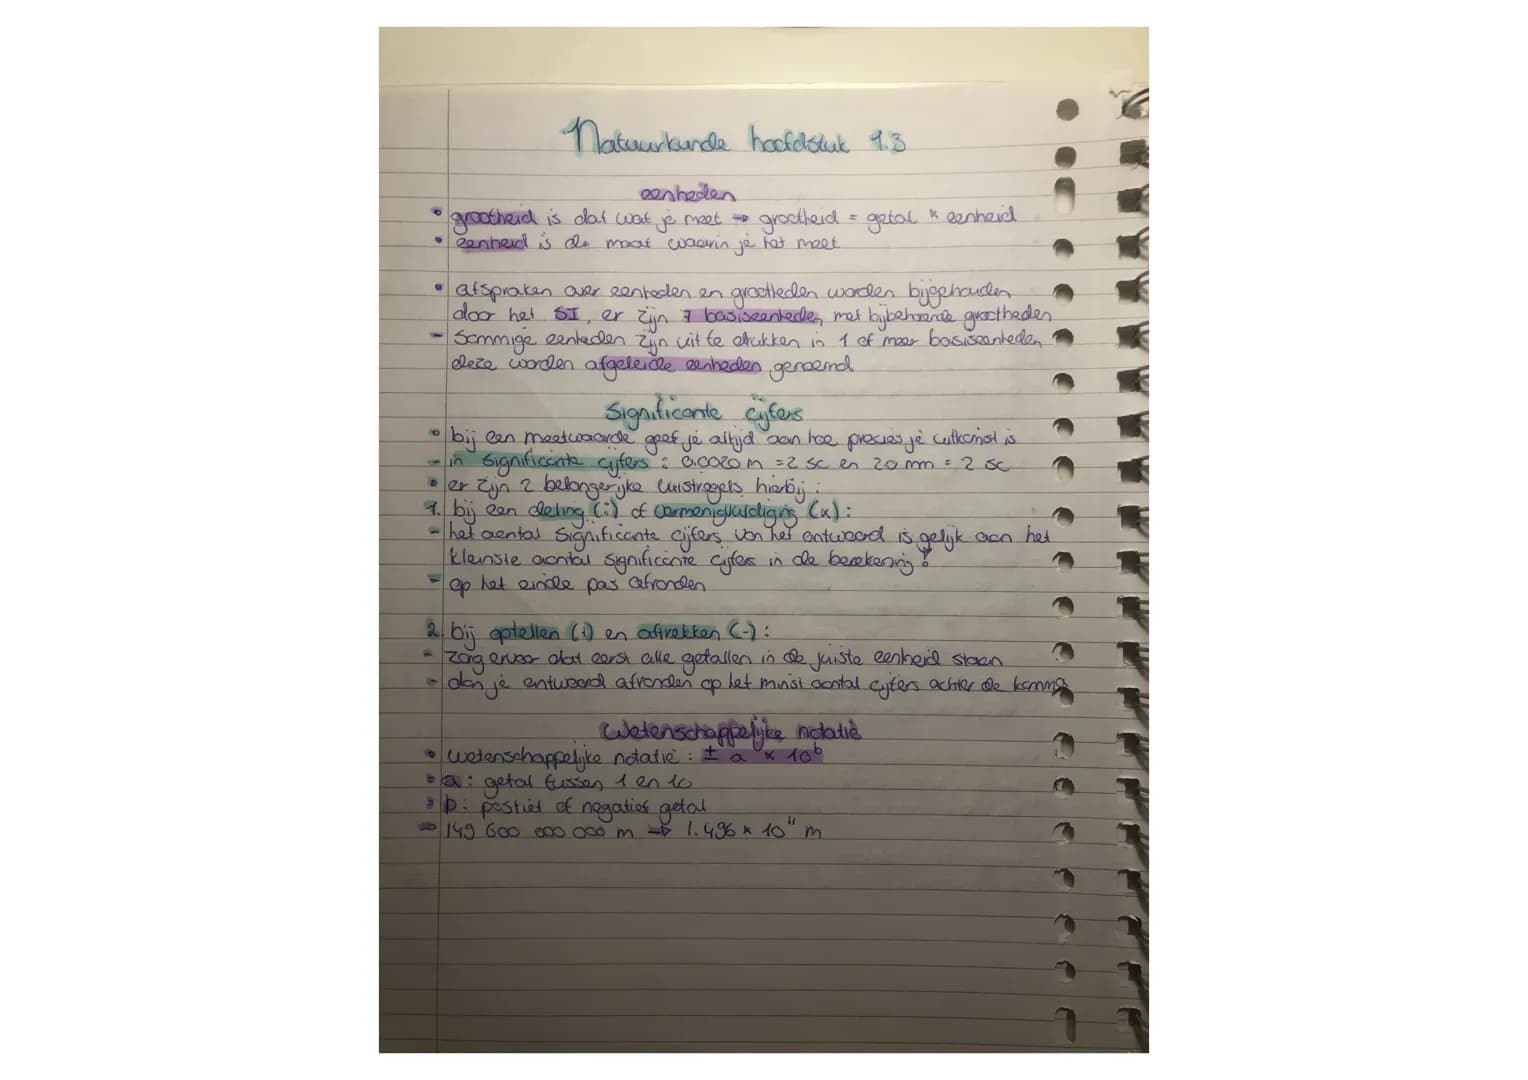 Natuurkunde hoofdstuk 1.3
eenheden
• grootheid is dat wat je meet → grootheid = getal × eenheid
• eenheid is de maat waarin je tat meet
• afspraken over eenheden en grootheden worden bijgehouden
door het SI, er zijn 7 basiseenheden met bijbehorende grootheden
- Sommige eenheden zijn uit te drukken in 1 of meer basiseenheden,
deze worden afgeleide eenheden genoemd
Significante cijfers
• bij een meetwaarde geef je altijd aan hoe precies je uitkomst is
- in significante cijfers : 0.0020 m = 2 sc en 20 mm = 2 sc
• er zijn 2 belangerijke vuistregels hierbij :
1. bij een deling (:) of vermenigvuldiging (x) :
- het aantal significante cijfers van het antwoord is gelijk aan het
kleinste aantal significante cijfers in de berekening !
- op het einde pas afronden
2. bij optellen (+) en aftrekken (-) :
- zorg ervoor dat eerst alle getallen in de juiste eenheid staan
- dan je antwoord afronden op het minst aantal cijfers achter de komma
Wetenschappelijke notatie
• wetenschappelijke notatie : ± a × 10ᵇ
• a : getal tussen 1 en 10
• b : postief of negatief getal
⇒ 149 600 000 000 m ⇒ 1.496 × 10¹¹ m